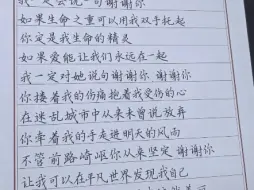 我一定会说一句谢谢你
如果生命之重可以用我双手托起
你定是我生命的精灵
如果爱能让我们永远在一起
我一定对她说句 谢谢你 谢谢你
你搂着我的伤痛抱着我受伤的心
在迷乱城市中从未曾说放弃
你牵着我的手走进明天的风雨
不管前路崎岖你从来坚定 谢谢你
让我可以在平凡世界发现我自己